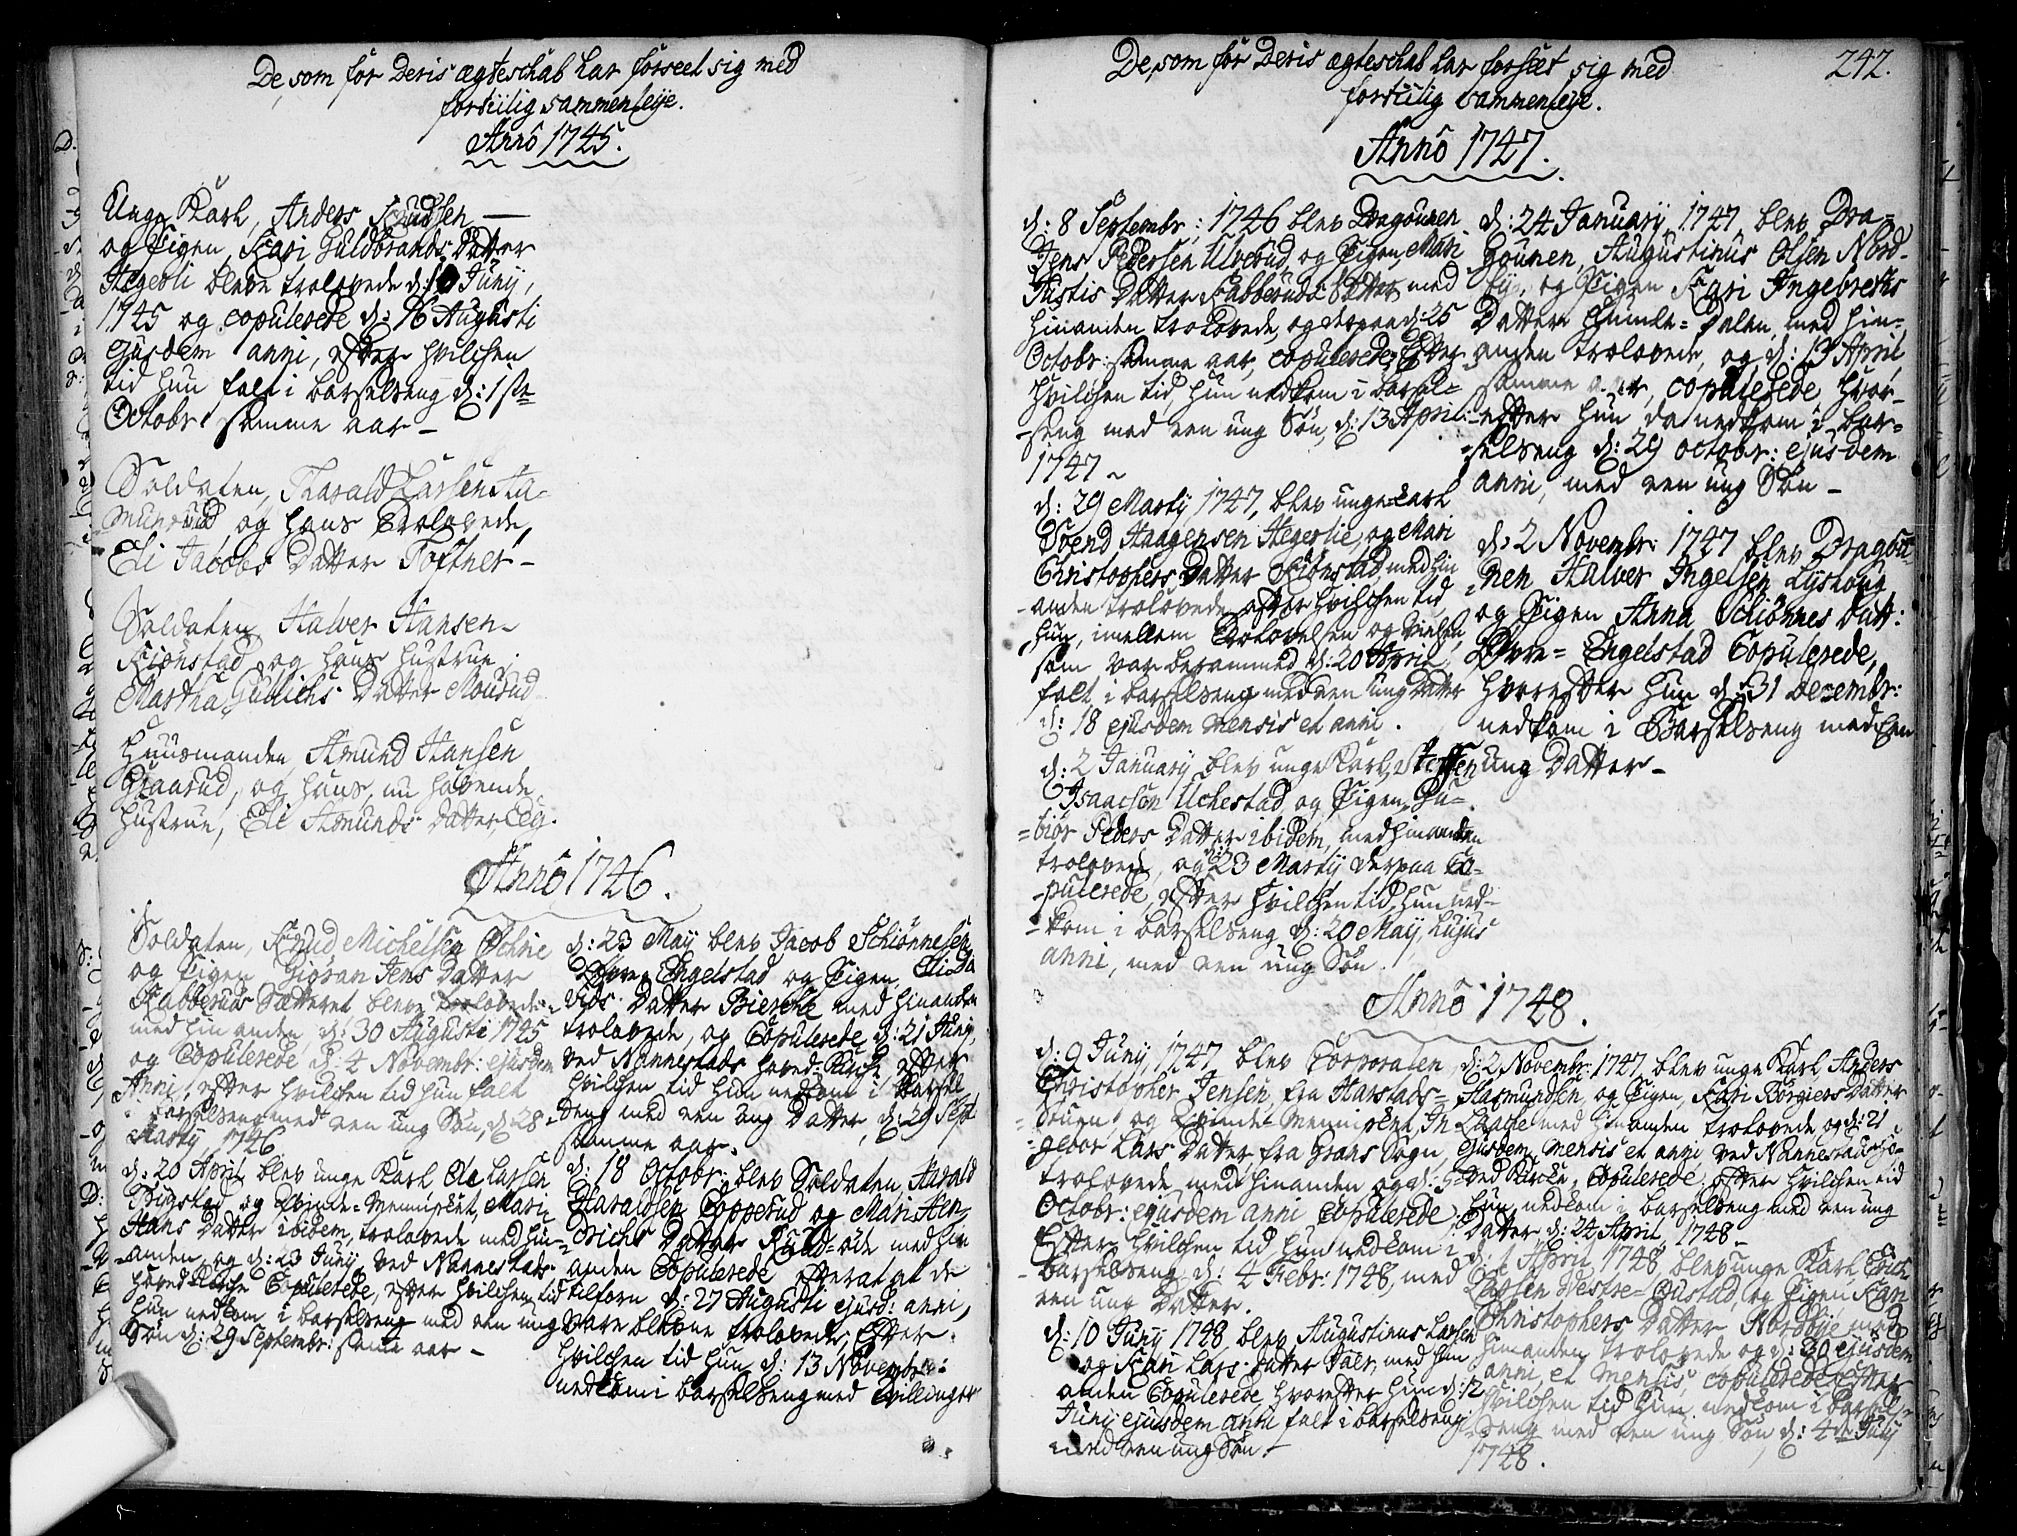 De, som før Deris ægteschab har forseet sig med
fortiilig sammenleije.
Anno 1745.
Unge Karl, Anders Knudsen
og Pigen, Kari Guldbrands Datter
Hegerli bleve trolovede d: 10 Junij,
1745 og copulerede d: 16 Augusti
ejusdem anni, efter hvilchen
tid hun falt i barselseng d: 1ste
Octobr: samme aar –
Soldaten, Harald Larsen Ha=
munrud og hans Trolovede,
Eli Jacobs Datter Toftner –
Soldaten Halver Hansen
Kiønstad og hans hustrue,
Martha Gullichs Datter Mousud
Huusmanden Amund Hansen
Graarud, og hans nu havende
hustrue, Eli Amunds Datter, Eeg.
Anno 1746.
Soldaten, Knud Michelsen
og Pigen Giøran Jens Datter
Kabberud Sætteret, bleve trolovede
med hinanden, d: 30 Augusti 1745
og Copulerede d: 4 Novembr: ejusdem
Anni, efter hvilchen tid hun falt
i barselseng med een ung Søn, d: 28
Martij 1746.
d: 20 April blev unge Karl Ole Larsen
Bigstad og Qvinde=Mennisket, Mari
Hans Datter ibidem, trolovede med hin=
anden, og d: 23 Junij, ved Nannestads
hoved Kirche Copulerede, efter hvilchen tid
hun nedkom i barselseng med een ung
Søn d: 29 Septembr: samme aar –
d: 23 Maij blev Jacob Schiønnesen
Øvre Engelstad og Pigen Eli Da
vids Datter Bierche med hinanden
trolovede, og Copulerede d: 21 Junij,
ved Nannestads hoved=Kirche, efter
hvilchen tid hun nedkom i barsel
seng med een ung Datter, d: 29 Sept
samme aar.
d: 18 Octobr: blev Soldaten, Harald
Haraldsen Copperud og Mari Hen=
drichs Datter Ruud=øde med hin
anden Copulerede efter at de
tilforn d: 27 Augusti ejusd: anni,
vare blevne trolovede, Efter
hvilchen tid hun, d: 13 Novembr:
nedkom i barselseng med Tvillinger
De, som før Deris ægteschab har forseet sig med
fortiilig sammenleije.
242.
Anno 1747.
d: 8 Septembr: 1746 blev Dragounen
Jens Pedersen Ulverud, og Pigen, Mari
Justis Datter Kabberuds Sætter med
hinanden trolovede, og derpaa d: 25
Octobr: samme aar, copulerede, Efter
hvilchen tid, hun nedkom i barsel=
seng med een ung Søn, d: 13 April
1747 ~
d: 29 Martij 1747, blev unge karl
Svend Haagensen Hegerlie, og Mari
Christophers Datter Kiønstad, med hin
anden trolovede, efter hvilchen tid
hun, imellem Trolovelsen og vielsen,
som var berammed d: 20 April,
falt i barselseng med een ung Datter
d: 18 ejusdem mensis et anni.
d: 2 Januarij blev unge Karl, Steffen
Isaacsen Uchestad, og Pigen, Gu=
biør Peders Datter ibidem, med hinanden
trolovede, og d: 23 Martij derpaa Co=
pulerede, efter hvilchen tid, hun ned=
kom i barselseng d: 20 Maij, hujus
anni, med een ung Søn.
d: 24 Januarij, 1747, blev Dra=
gounen, Augustinus Olsen Nord=
bye, og Pigen Kari Ingebreths
Datter Humle=dalen, med hin=
anden trolovede, og d: 13 April
samme aar, copulerede, hvor=
efter hun da nedkom i bar=
selseng d: 29 octobr: ejusdem
anni, med een ung Søn –
d: 2 Novembr: 1747 blev Dragou
nen Halver Ingelsen Lystoug
og Pigen Anna Schiønnes Datt:
Øvre=Engelstad Copulerede,
hvorefter hun d: 31 Decembr:
nedkom i Barselseng med Een
ung Datter –
Anno 1748.
d: 9 Junij, 1747 blev Corporalen,
Christopher Jensen, fra Harstads=
Stuen, og Qvinde=Mennisket, In
gebor Lars Datter, fra Grans Sogn,
trolovede med hinanden og d: 5
Octobr: ejusdem anni Copulerede
Efter hvilchen tid hun nedkom i
barselseng d: 4 Febr: 1748, med
een ung Datter.
d: 10 Junij 1748 blev Augustinus Larsen
og Kari Lars Datter Taer, med hin
anden Copulerede hvorefter hun d: 12
Junij ejusdem anni falt i barselseng
med een ung Søn –
d: 2 Novembr: 1747, blev unge Karl Anders
Haamundsen, og Pigen, Kari Børgers Datter
med hinanden trolovede, og d: 21
ejusdem mensis et anni ved Nannestad Ho=
ved Kirche, Copulerede, efter hvilchen tid
hun, nedkom i barselseng med een ung
Datter d: 24 April, 1748 –
d: 1 April, 1748 blev unge Karl Erich
Larsen Westre=Bustad, og Pigen Kari
Christophers Datter Nordbye med
hinanden trolovede og d: 30 ejusdem
anni, et mensis, copulerede efter
hvilchen tid hun nedkom i barsel=
seng med een ung Søn d: 4de Julij
1748.